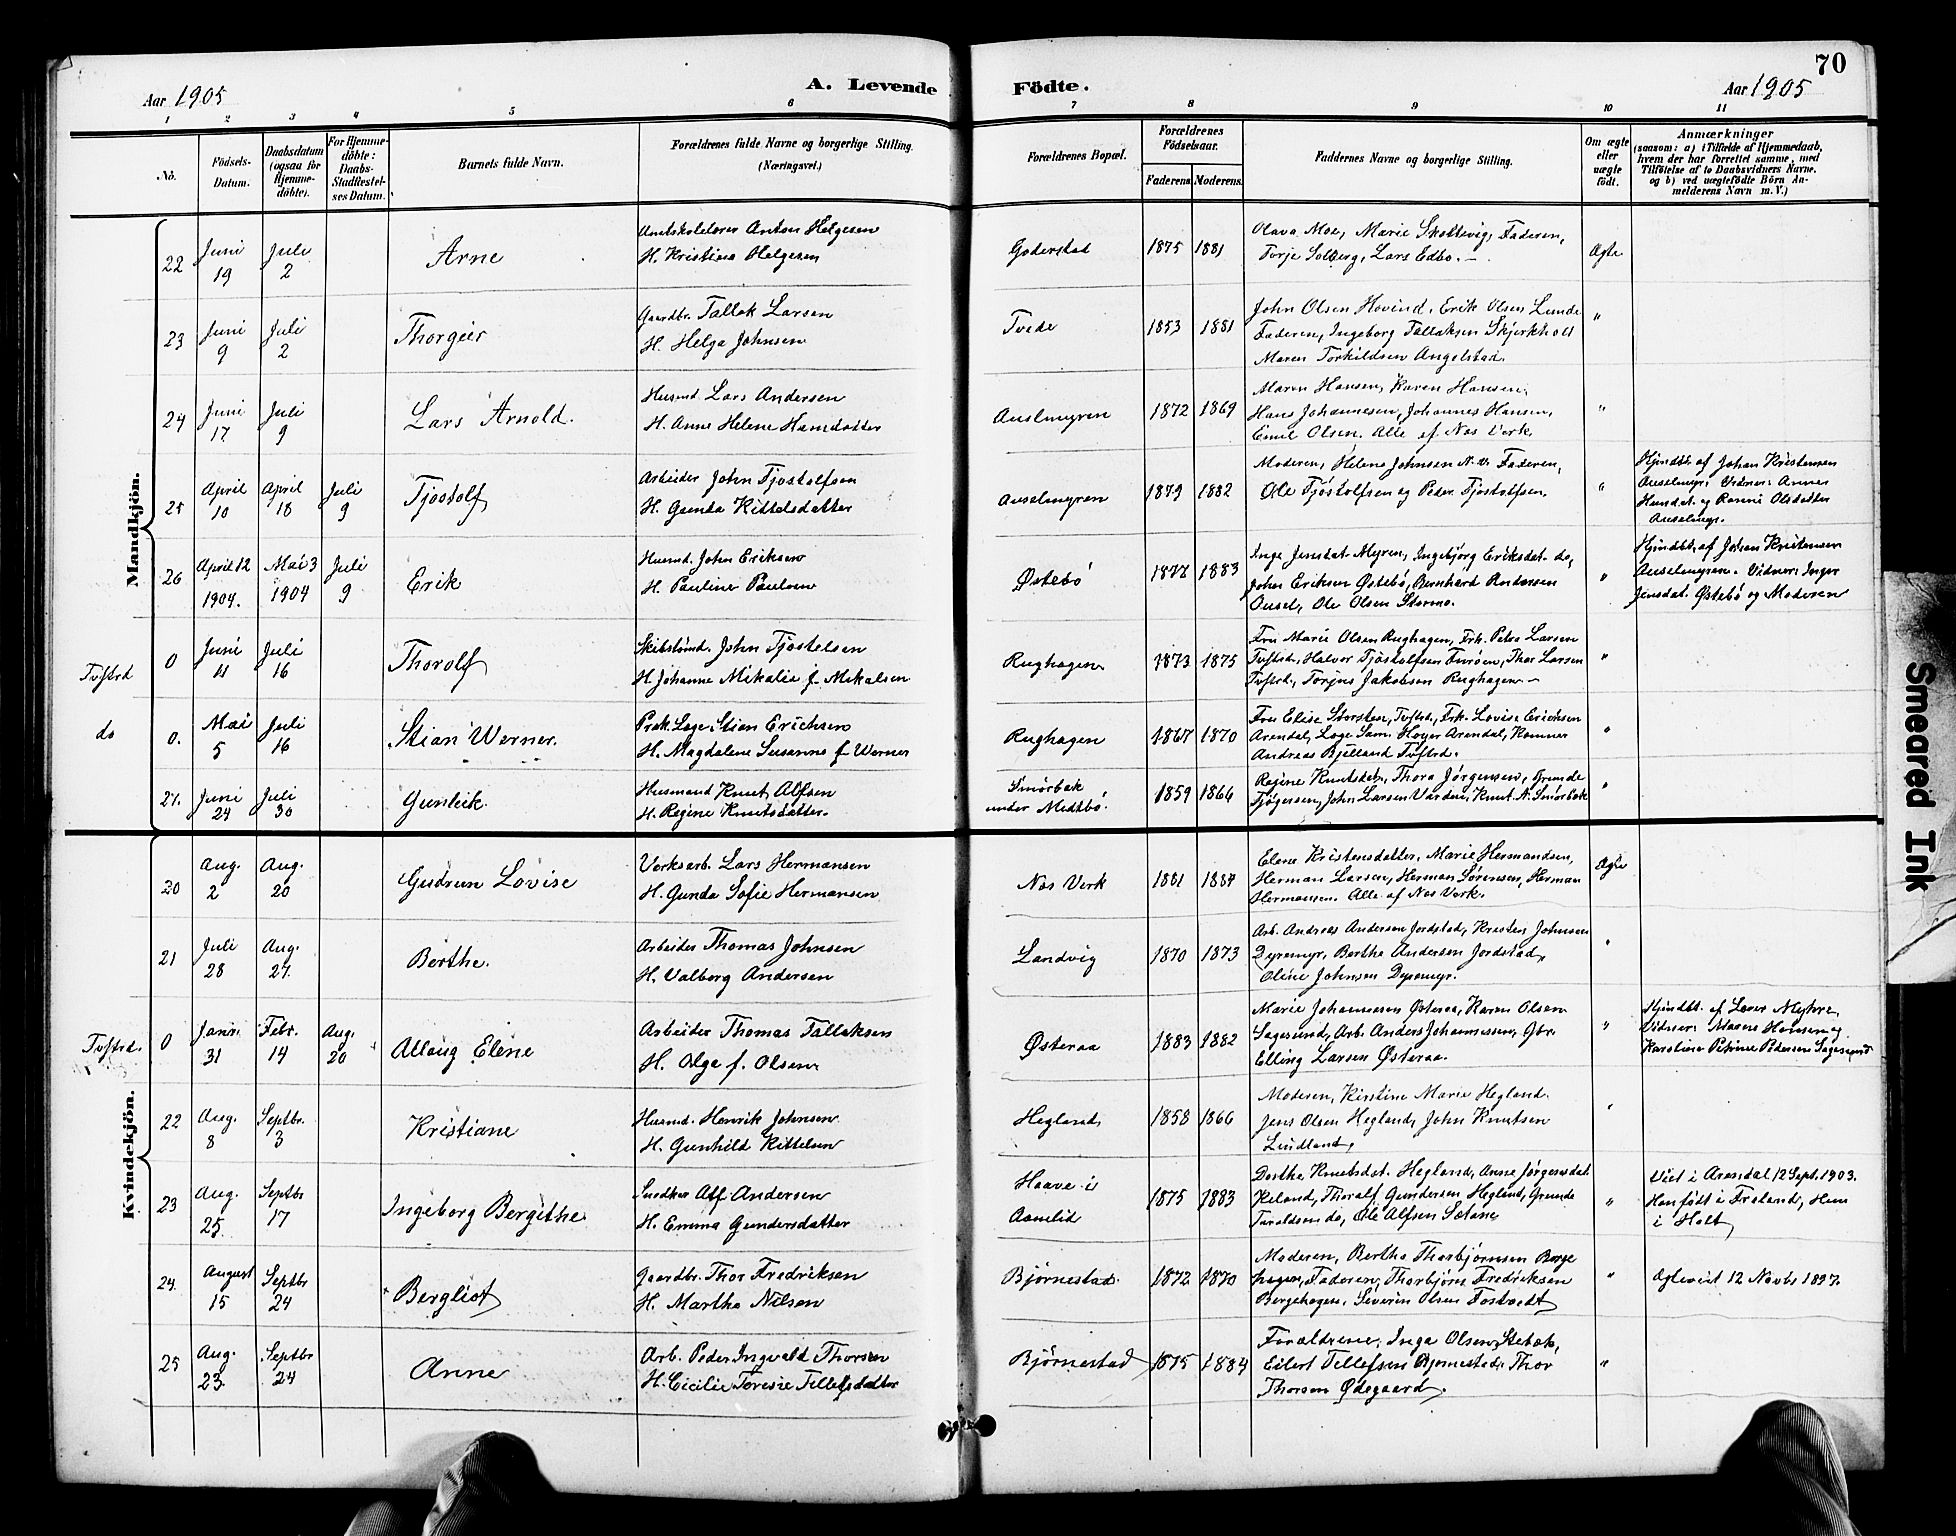 70
Aar 1905
A. Levende Födte.
Aar 1905
1 2 3 4 5 6 7 8 9 10 11
No.
Födsels-
Datum.
Daabsdatum
(ogsaa för
Hjemme-
döbte).
For Hjemme-
döbte:
Daabs-
Stadfæstel-
ses Datum.
Barnets fulde Navn.
Forældrenes fulde Navne og borgerlige Stilling.
(Næringsvei.)
Forældrenes Bopæl.
Forældrenes
Födselsaar.
Faderens.
Moderens.
Faddernes Navne og borgerlige Stilling.
Om ægte
eller
uægte
födt.
Anmærkninger
(saasom: a) i Tilfælde af Hjemmedaab,
hvem der har forrettet samme, med
Tilföielse af to Daabsvidners Navne.
og b) ved uægtefödte Börn An-
melderens Navn m. V.)
Mandkjön.
22 Juni 19 Juli 2 Arne
Amtskolelærer Anton Helgesen
H. Kristine Helgesen
Goderstad 1875 1881
Olava Moe, Marie Skottevig, Faderen,
Torje Solberg, Lars Edbo. —
Ægte
23 Juni 9 Juli 2 Thorgeir
Gaardbr. Tallak Larsen
H. Helga Johnsen
Tvede 1853 1881
John Olsen Hovind, Erik Olsen Lunde
Faderen, Ingeborg Tallaksen Skjerkholt
Maren Torkildsen Angelstad.
"
24 Juni 17 Juli 9 Lars Arnold.
Husmd. Lars Andersen
H. Anne Helene Hansdatter
Auselmyren 1872 1869
Maren Hansen, Karen Hansen,
Hans Johannesen, Johannes Hansen,
Emil Olsen. Alle af Næs Verk.
"
25 April 10 April 18 Juli 9 Tjostolf
Arbeider John Tjostolfsen
H. Gunda Kittelsdatter
Auselmyren 1879 1882
Moderen, Helene Johnsen N.V. Faderen,
Ole Tjostolfsen og Peder Tjostolfsen.
"
Hjmdbt. af Johan Kristensen
Auselmyr. Vidner: Anne
Hansdat. og Olsdatter
Auselmyr.
26 April 12 1904. Mai 3 1904 Juli 9 Erik
Husmd. John Eriksen
H. Pauline Paulsen
Østebö 1877 1883
Inge Jensdat. Myren, Ingebjörg Eriksdat. do,
John Eriksen Østebö, Bernhard Andersen
Ausel, Ole Olsen Stormo.
"
Hjmdbt. af Johan Kristensen
Auselmyren. Vidner: Inger
Jensdat. Østebö og Moderen
Tvstrd 0 Juni 11 Juli 16 Thorolf
Skibstömd. John Tjostelsen
H. Johanne Mikalie f. Mikalsen
Rughagen 1873 1875
Fru Marie Olsen Rughagen, Frk. Petra Larsen
Tvstrd., Halvor Tjostolfsen Furöen, Thor Larsen
Tvstrd., Torjus Jakobsen Rughagen. —
"
do 0. Mai 5 Juli 16 Stian Werner.
Prak. Læge Stian Erichsen
H. Magdalene Susanne f. Werner
Rughagen 1867 1870
Fru Elise Storsten, Tvstrd., Frk. Lovise Erichsen
Arendal, Læge Sam. Høyer Arendal,
Andreas Bjelland Tvstrd.
"
27. Juni 24 Juli 30 Gunleik.
Husmand Knut Alfsen
H. Regine Knutsdatter.
Smörbæk
under Midtbö. 1859 1866
Regine Knutsdat., Thora Jørgensen, Grunde
John Larsen Varden, Knut A. Smörbæk
"
Kvindekjön.
20 Aug. 2 Aug. 20 Gudrun Lovise
Verksarb. Lars Hermansen
H. Gunda Sofie Hermansen
Næs Verk 1881 1887
Elene Kristensdatter, Marie Hermandsen,
Herman Larsen, Herman Sørensen, Herman
Hermansen. Alle af Næs Verk.
Ægte
21 Juli 28 Aug. 27. Berthe.
Arbeider Thomas Johnsen
H. Valborg Andersen
Landvig 1870 1873
Arb. Andreas Andersen Jordstad, Kresten Johnsen
Dyremyr, Berthe Andersen Jordstad,
Oline Johnsen Dyremyr.
"
Tvstrd. 0 Janr. 31 Febr. 14 Aug. 20 Allaug Elene
Arbeider Thomas Tallaksen
H. Olga f. Olsen
Østeraa 1883 1882
Marie Johannesen Østeraa, Karen Olsen
Sagesund, Arb. Anders Johannessen, Gbr.
Elling Larsen Østeraa.
"
Hjmdbt. af Lærer Myhre,
Vidner: Maren Hansen og
Karoline Petrine Pedersen Sagesund
22 Aug. 8 Septbr. 3 Kristiane
Husmd. Henrik Johnsen
H. Gunhild Kittelsen
Hegland 1858 1866
Moderen, Kirstine Marie Hegland.
Jens Olsen Hegland, John Knutsen
Lindland,
"
23 Aug. 25. Septbr 17 Ingeborg Bergithe
Snedker Alf Andersen
H. Emma Gundersdatter
Haave i
Aamlid 1875 1883
Dorthe Knutsdat. Hegland, Anne Jørgensdat
Eeland, Thoralf Gundersen Hegland, Grunde
Taraldsen do, Ole Alfsen Sætane
"
Viet i Arendal 12 Sept. 1903.
Han född i Froland, Hun
i Holt,
24. August 15 Septbr 24 Bergliot
Gaardbr. Thor Fredriksen
H. Marthe Nilsen
Bjørnestad. 1872 1870
Moderen, Berthe Thorbjørnsen Berge
hagen, Faderen, Thorbjørn Fredriksen
Bergehagen, Severin Olsen Fostvedt
"
Ægteviet 12 Novbr 1897.
25 Aug. 23. Septbr 24 Anne
Arb. Peder Ingvald Thorsen
H. Cicilie Teresie Tellefsdatter
Bjørnestad 1875 1884
Forældrene, Inga Olsen Stebæk,
Eilert Tellefsen Bjørnestad, Thor
Thorsen Ødegaard.
"
Smeared Ink